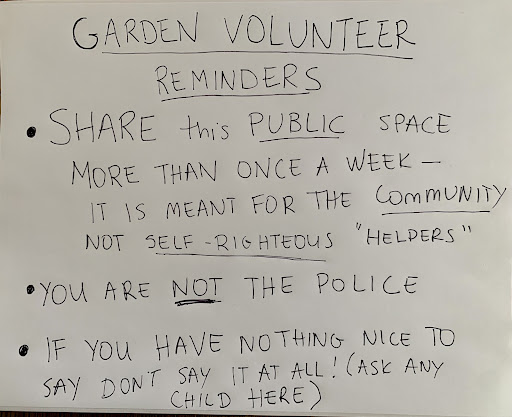 GARDEN VOLUNTEER
REMINDERS
• SHARE this PUBLIC SPACE
MORE THAN ONCE A WEEK –
IT IS MEANT FOR THE COMMUNITY
NOT SELF-RIGHTEOUS "HELPERS"
• YOU ARE NOT THE POLICE
• IF YOU HAVE NOTHING NICE TO
SAY DON'T SAY IT AT ALL! (ASK ANY
CHILD HERE)